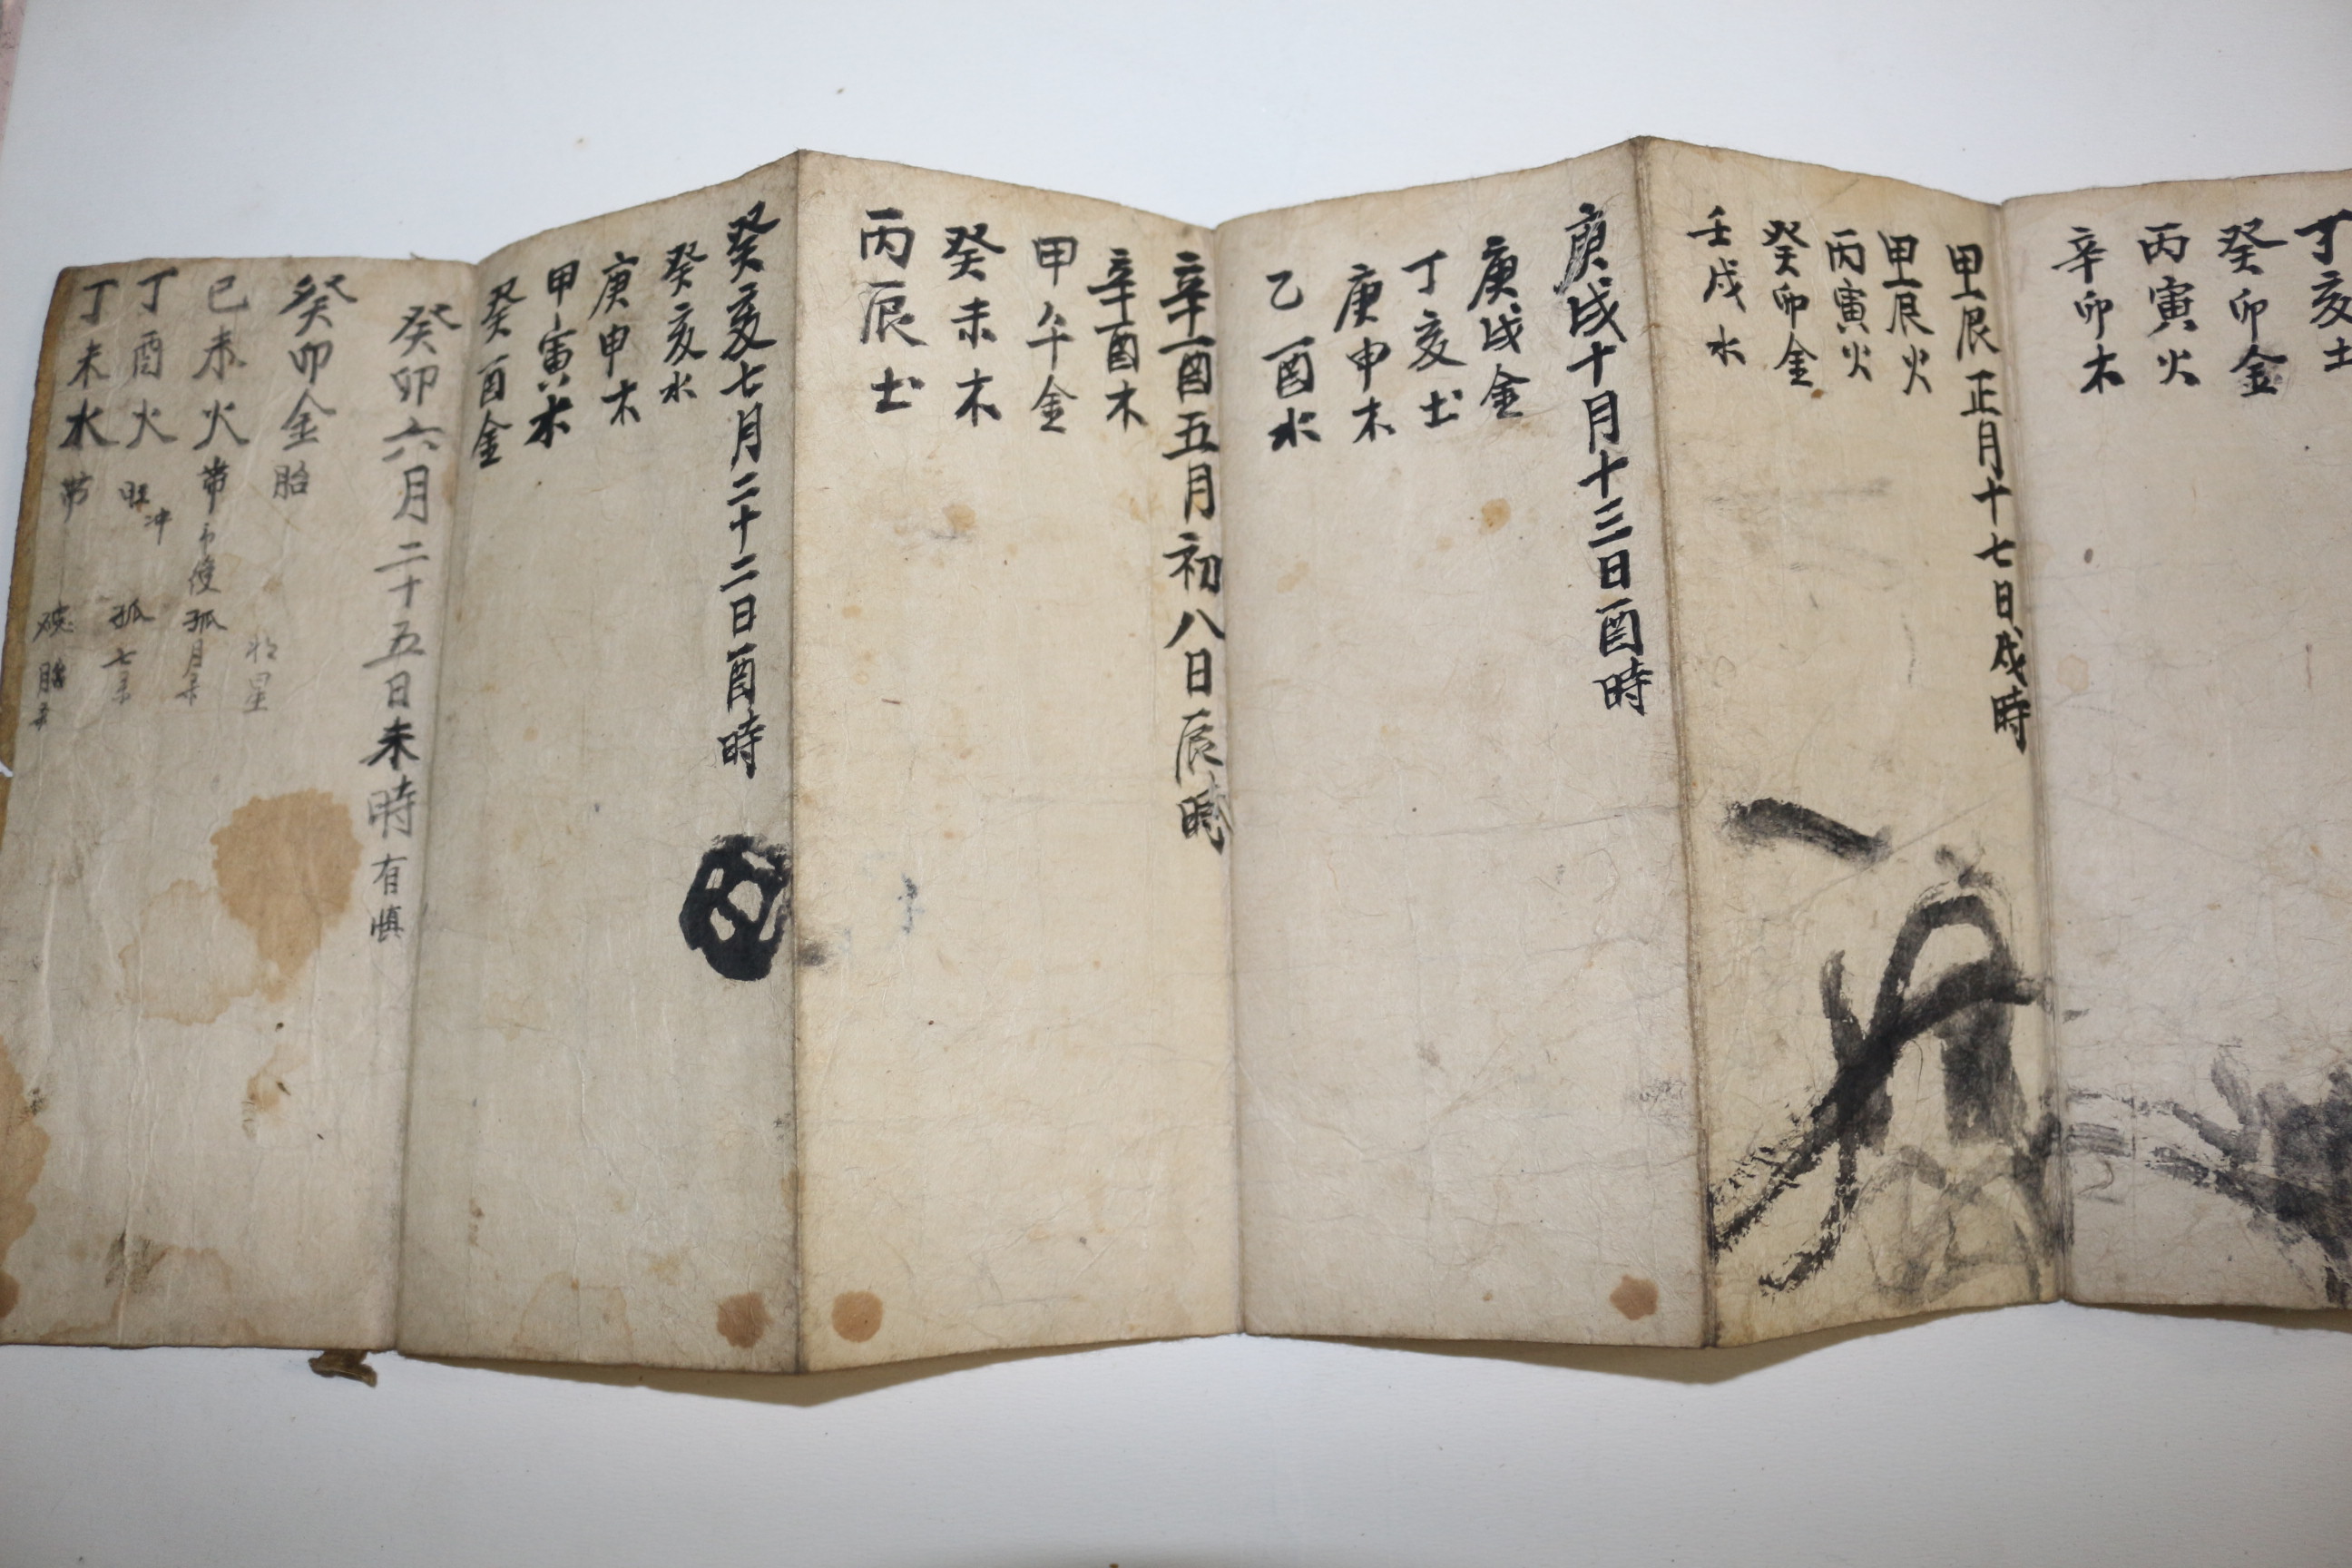 丁亥土
癸卯金
丙寅火
辛卯木
甲辰正月十七日戌時
甲辰火
丙寅火
癸卯金
壬戌水
庚戌十月十三日酉時
庚戌金
丁亥土
庚申木
乙酉水
辛酉五月初八日辰時
辛酉木
甲午金
癸未木
丙辰土
癸亥七月二十二日酉時
癸亥水
庚申木
甲寅木
癸酉金
癸卯六月二十五日未時有慎
癸卯金胎
己未火帶 孤月
丁酉火旺冲孤七
丁未水帶 胎